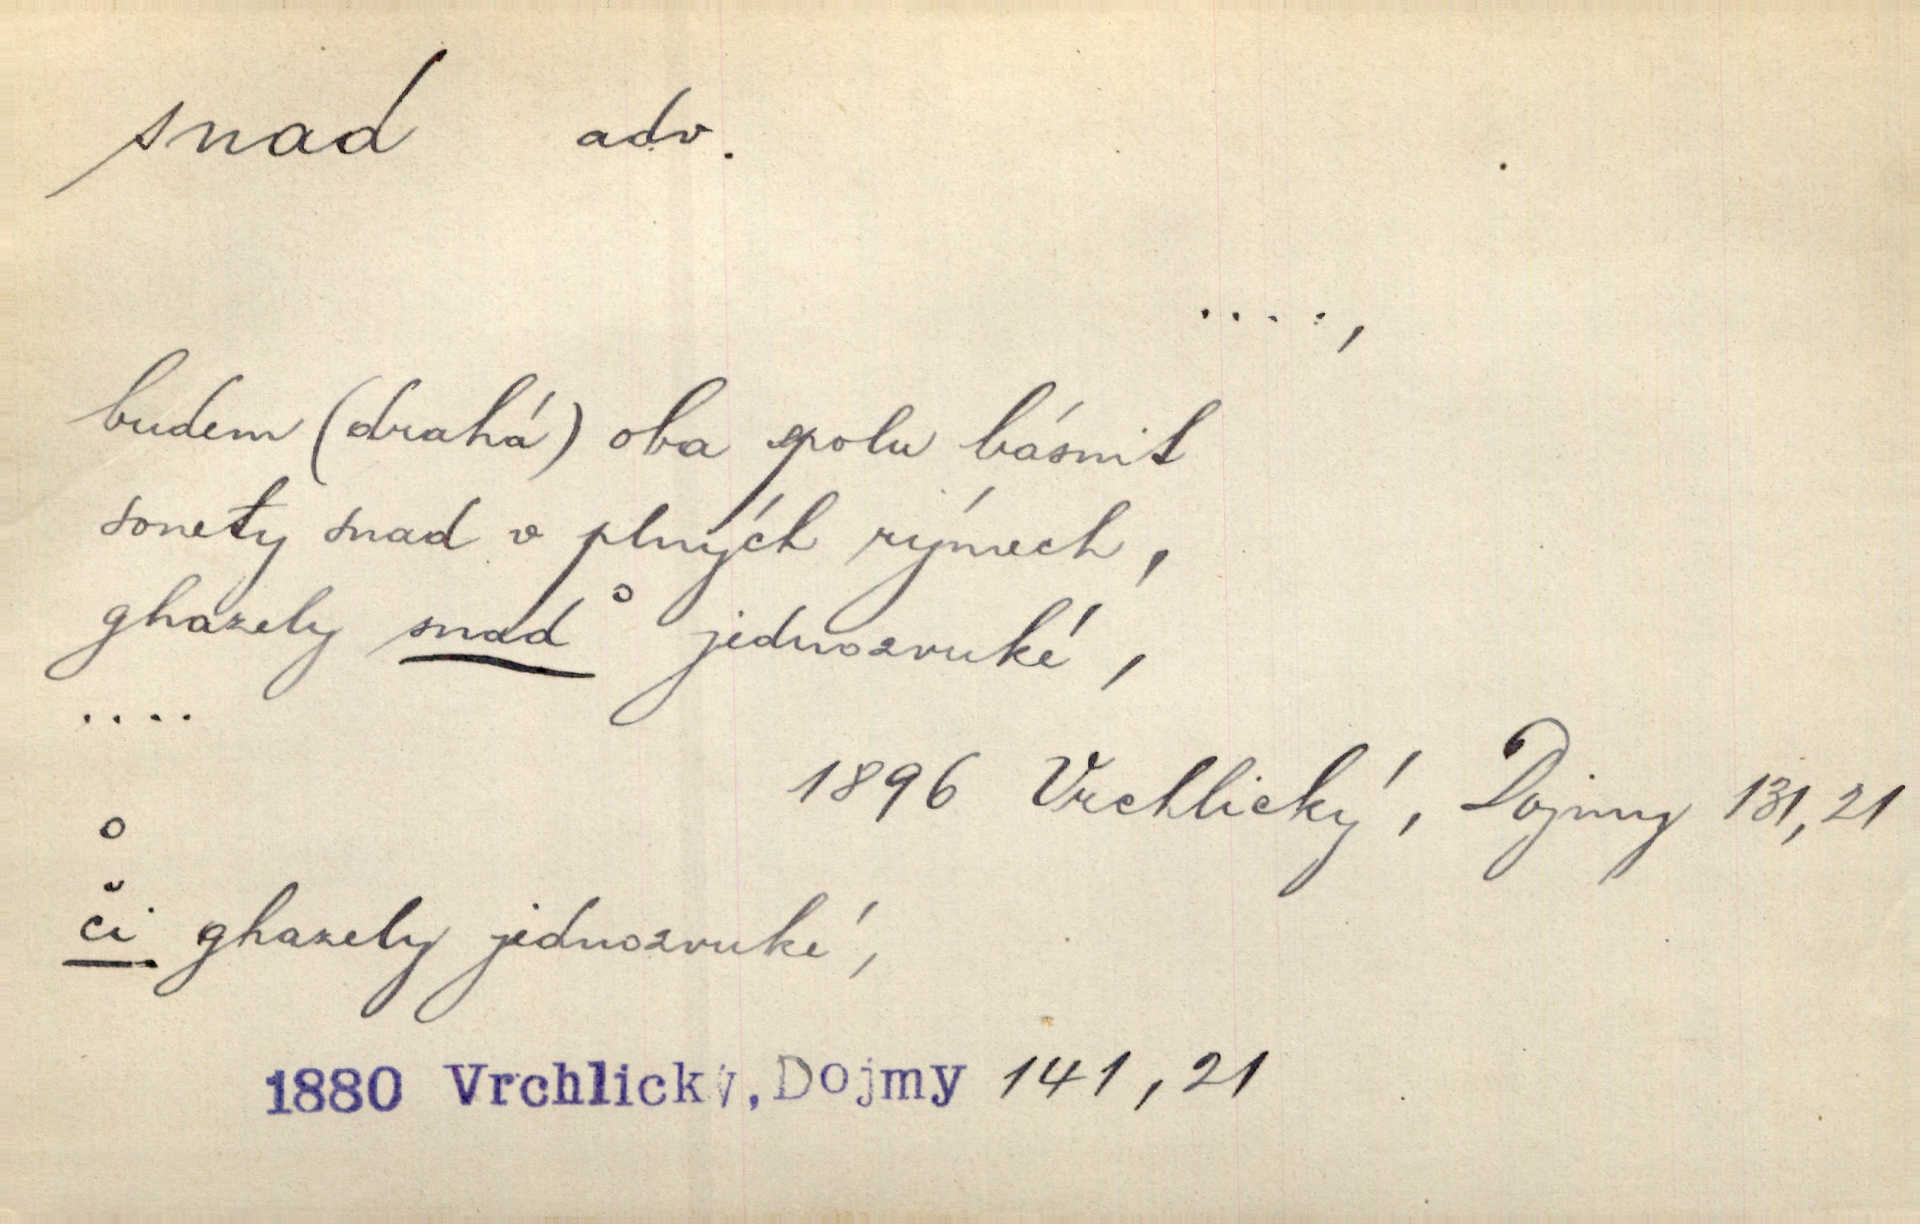 snad adv.
....,
budem (drahá) oba spolu básnit
sonety snad v plných rýmech,
ghazely snad° jednozvuké,
....
1896 Vrchlický, Dojmy 131,21
°
či ghazely jednozvuké,
1880 Vrchlický, Dojmy 141,21